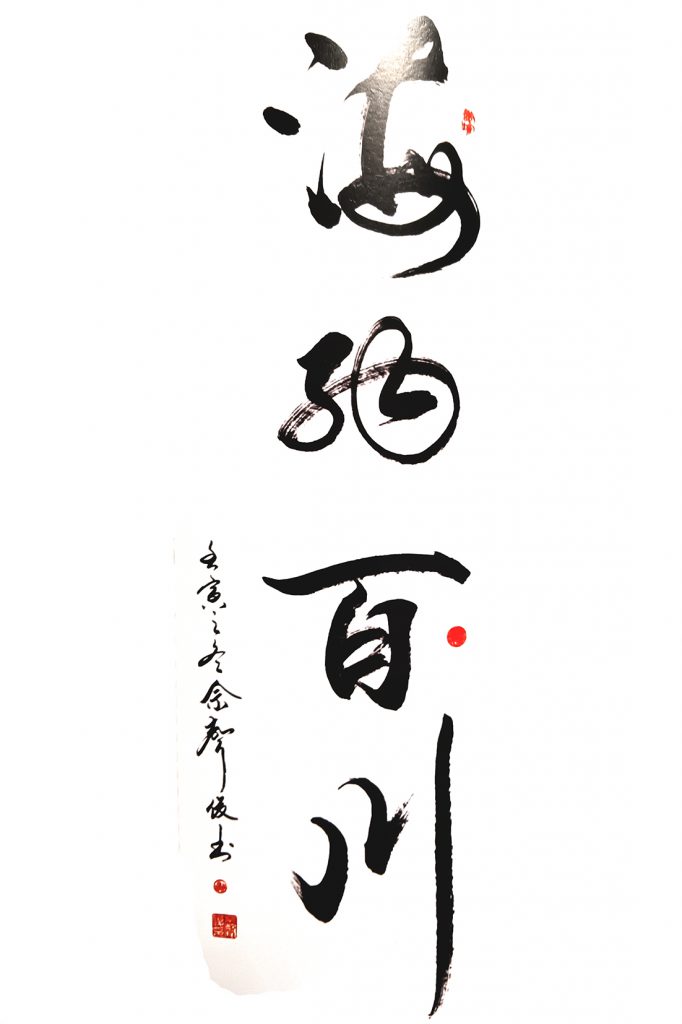 海纳百川
壬寅之冬余声俊书